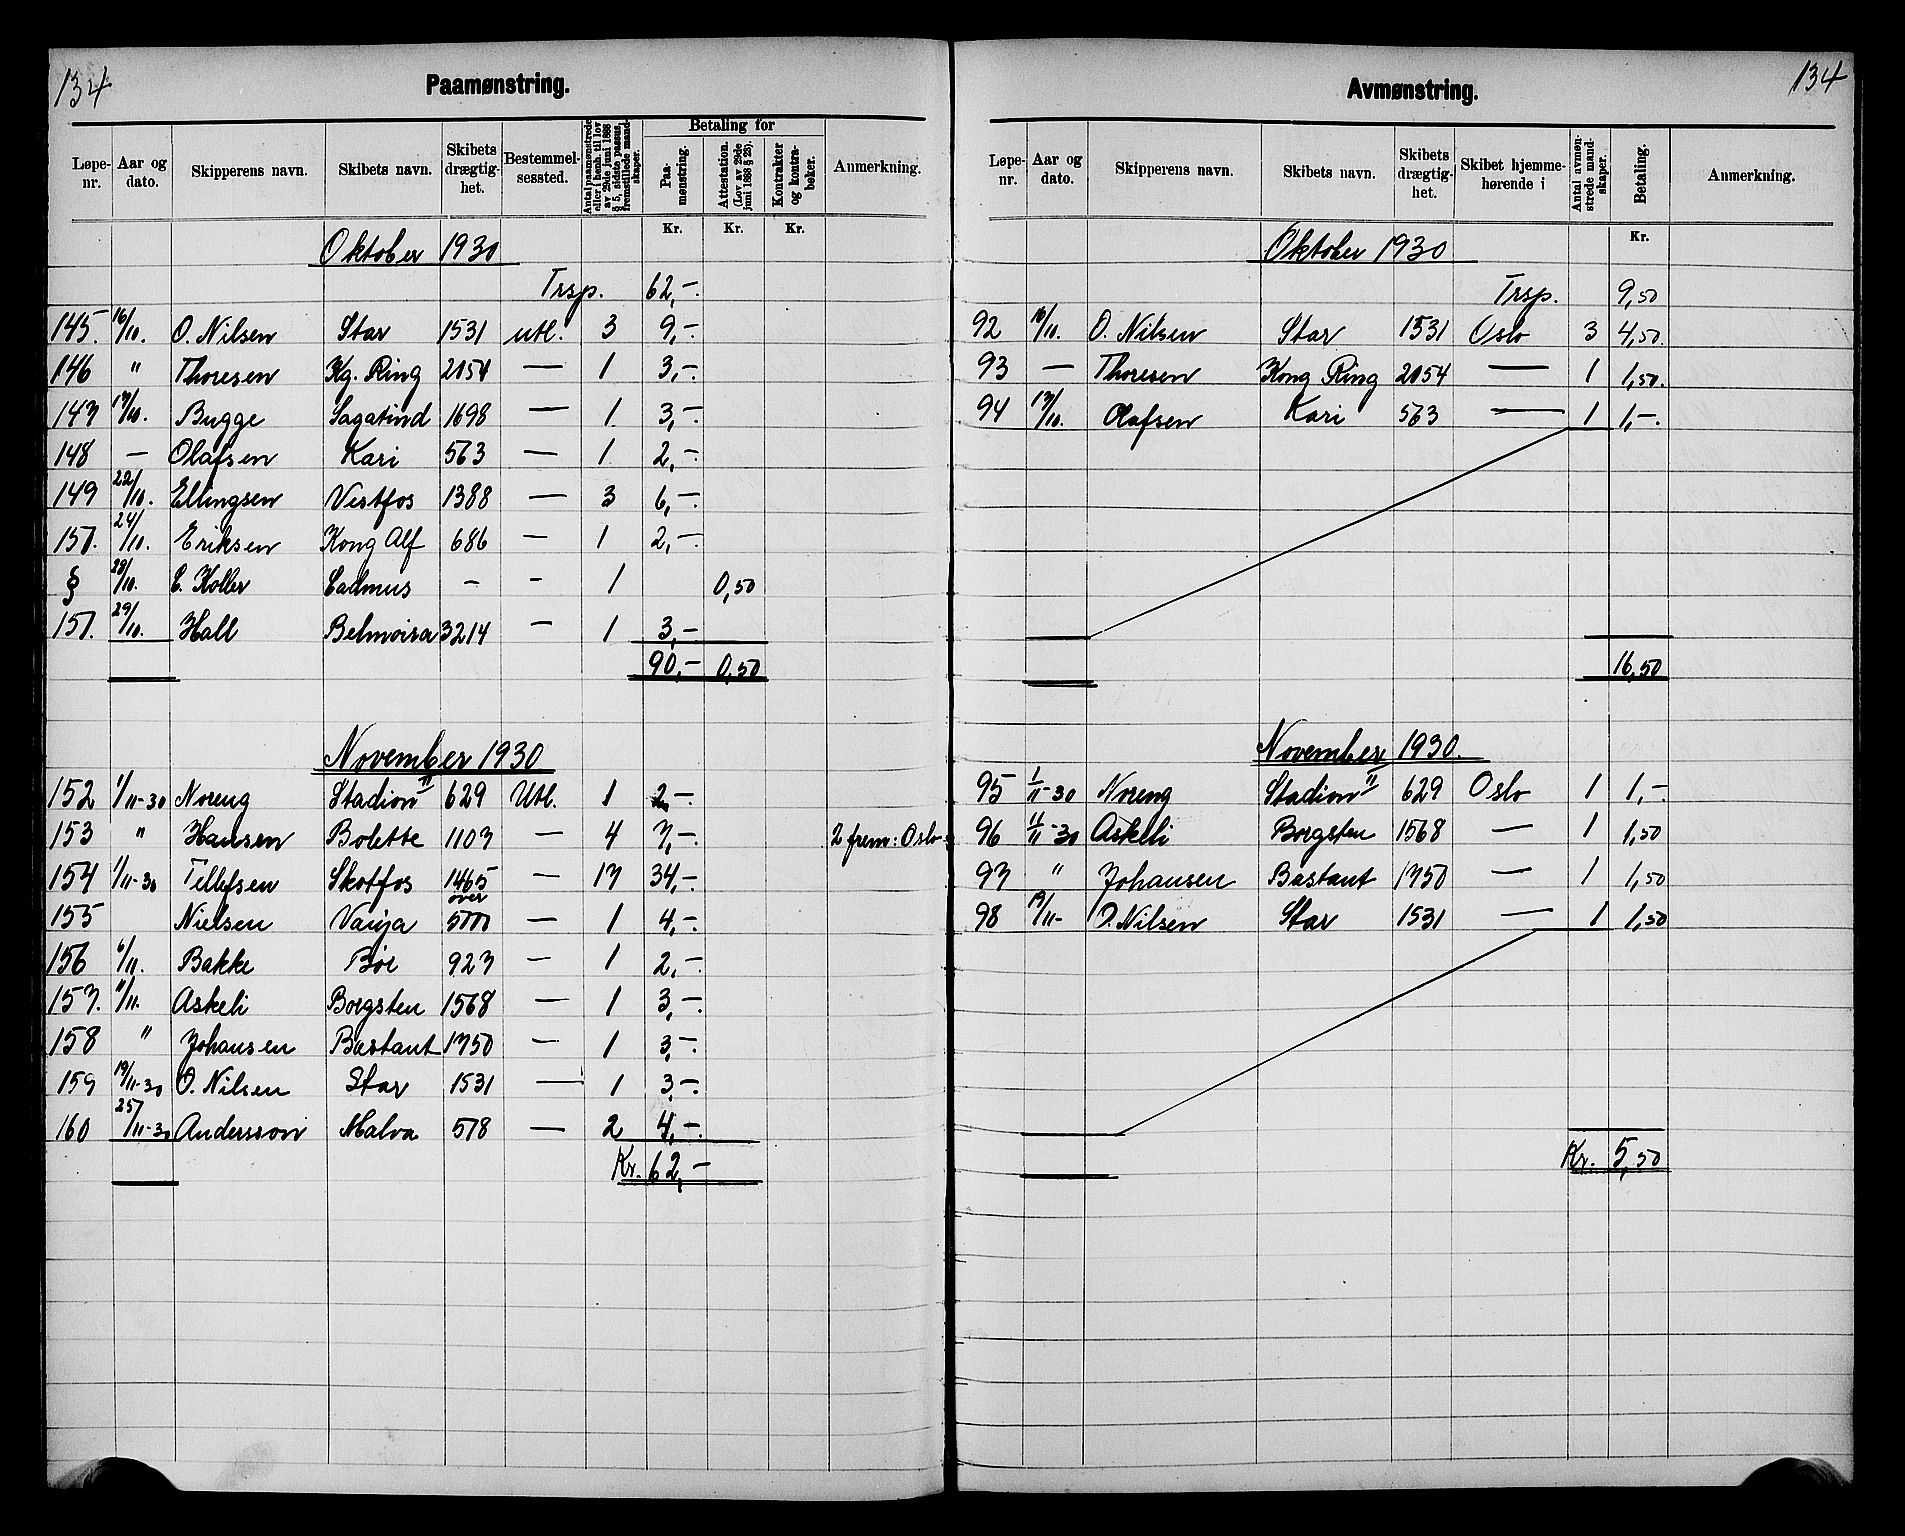 134
Paamønstring.
Løpe-nr. Aar og dato. Skipperens navn. Skibets navn. Skibets drægtig-het. Bestemmel-sessted. Antal paamønstrede eller i henh. til lov av 29de juni 1888 § 5, sidste passus, fremstillede mand-skaper. Betaling for Paa-mønstring. Attestation. (Lov av 29de juni 1888 § 28). Kontrakter og kontra-bøker. Anmerkning.
Kr. Kr. Kr.
Oktober 1930
Trsp. 62,-
145. 16/10. O. Nilsen Star 1531 utl. 3 9,-
146 " Thoresen Kg. Ring 2154 — 1 3,-
147 17/10. Bugge Sagatind 1698 — 1 3,-
148 — Olafsen Kari 563 — 1 2,-
149 22/10. Ellingsen Vestfos 1388 — 3 6,-
150. 24/10. Eriksen Kong Alf 686 — 1 2,-
§ 28/10. E. Koller Cadmus - - 1 0,50
151. 29/10. Hall Belmoira 3214 — 1 3,-
90,- 0,50
November 1930
152 1/11-30 Noreng Stadion II 629 Utl. 1 2,-
153 " Hansen Bolette 1103 — 4 7,- 2 frem: Oslo
154 1/11-30 Tellefsen Skotfos 1465 — 17 34,-
155 Nielsen Vanja over 5000 — 1 4,-
156 6/11. Bakke Bøe 923 — 1 2,-
157. 11/11. Askeli Borgsten 1568 — 1 3,-
158 " Johansen Bastant 1750 — 1 3,-
159 19/11-30 O. Nilsen Star 1531 — 1 3,-
160 25/11-30 Andersson Malva 578 — 2 4,-
Kr. 62,-
134
Avmønstring.
Løpe-nr. Aar og dato. Skipperens navn. Skibets navn. Skibets drægtig-het. Skibet hjemme-hørende i Antal avmøn-strede mand-skaper. Betaling. Anmerkning.
Kr.
Oktober 1930
Trsp. 9,50
92 16/10. O. Nilsen Star 1531 Oslo 3 4,50
93 — Thoresen Kong Ring 2154 — 1 1,50.
94 17/10. Olafsen Kari 563 — 1 1,-.
16,50
November 1930.
95 1/11-30 Noreng Stadion II 629 Oslo 1 1,-.
96 11/11-30 Askeli Borgsten 1568 — 1 1,50
97 " Johansen Bastant 1750 — 1 1,50
98 19/11- O. Nilsen Star 1531 — 1 1,50
Kr. 5,50